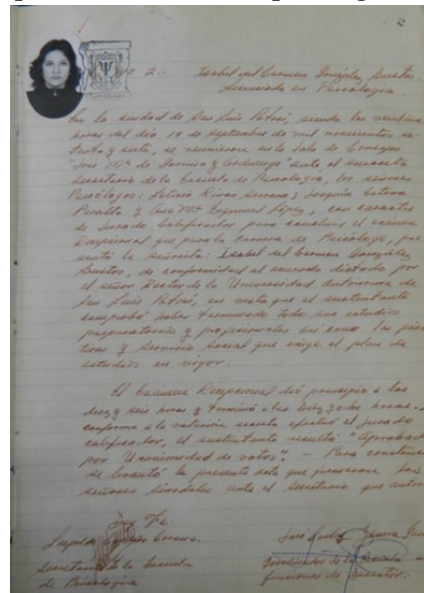 2
2.- Isabel del Carmen González Bustos
Licenciado en Psicología.
En la ciudad de San Luis Potosí, siendo las
horas del día 14 de septiembre de mil novecientos se-
tenta y siete, se reunieron en la Sala de Consejos
"José Mª de y " ante el
secretario de la Escuela de Psicología, los señores
Psicólogos: Leticia Rivas , Joaquín
Peralta y Ana Mª López, con caracter
de Jurado Calificador para el exámen
Recepcional que para la carrera de Psicólogo, pre-
sentó la señorita: Isabel del Carmen González
Bustos, de conformidad al acuerdo dictado por
el señor Rector de la Universidad Autónoma de
San Luis Potosí, en vista que el sustentante
comprobó haber terminado todos sus estudios
preparatorios y profesionales así como las prác
ticas y servicio social que exige el plan de
estudios en vigor.
El Exámen Recepcional dió principio a las
diez y seis horas y terminó a las diez y ocho horas.
conforme a la votación secreta efectuó el Jurado
calificador, el sustentante resultó "Aprobado
por Unanimidad de votos". - Para constancia
se levantó la presente acta que firmaron los
señores Sinodales ante el secretario que
Secretario de la Escuela
de Psicología
José
Coordinador de la Escuela
funciones de Director.